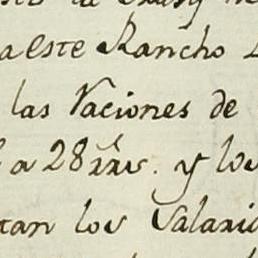 a este Rancho
las Raciones de
a 28 rrs. y los
tan los Salario